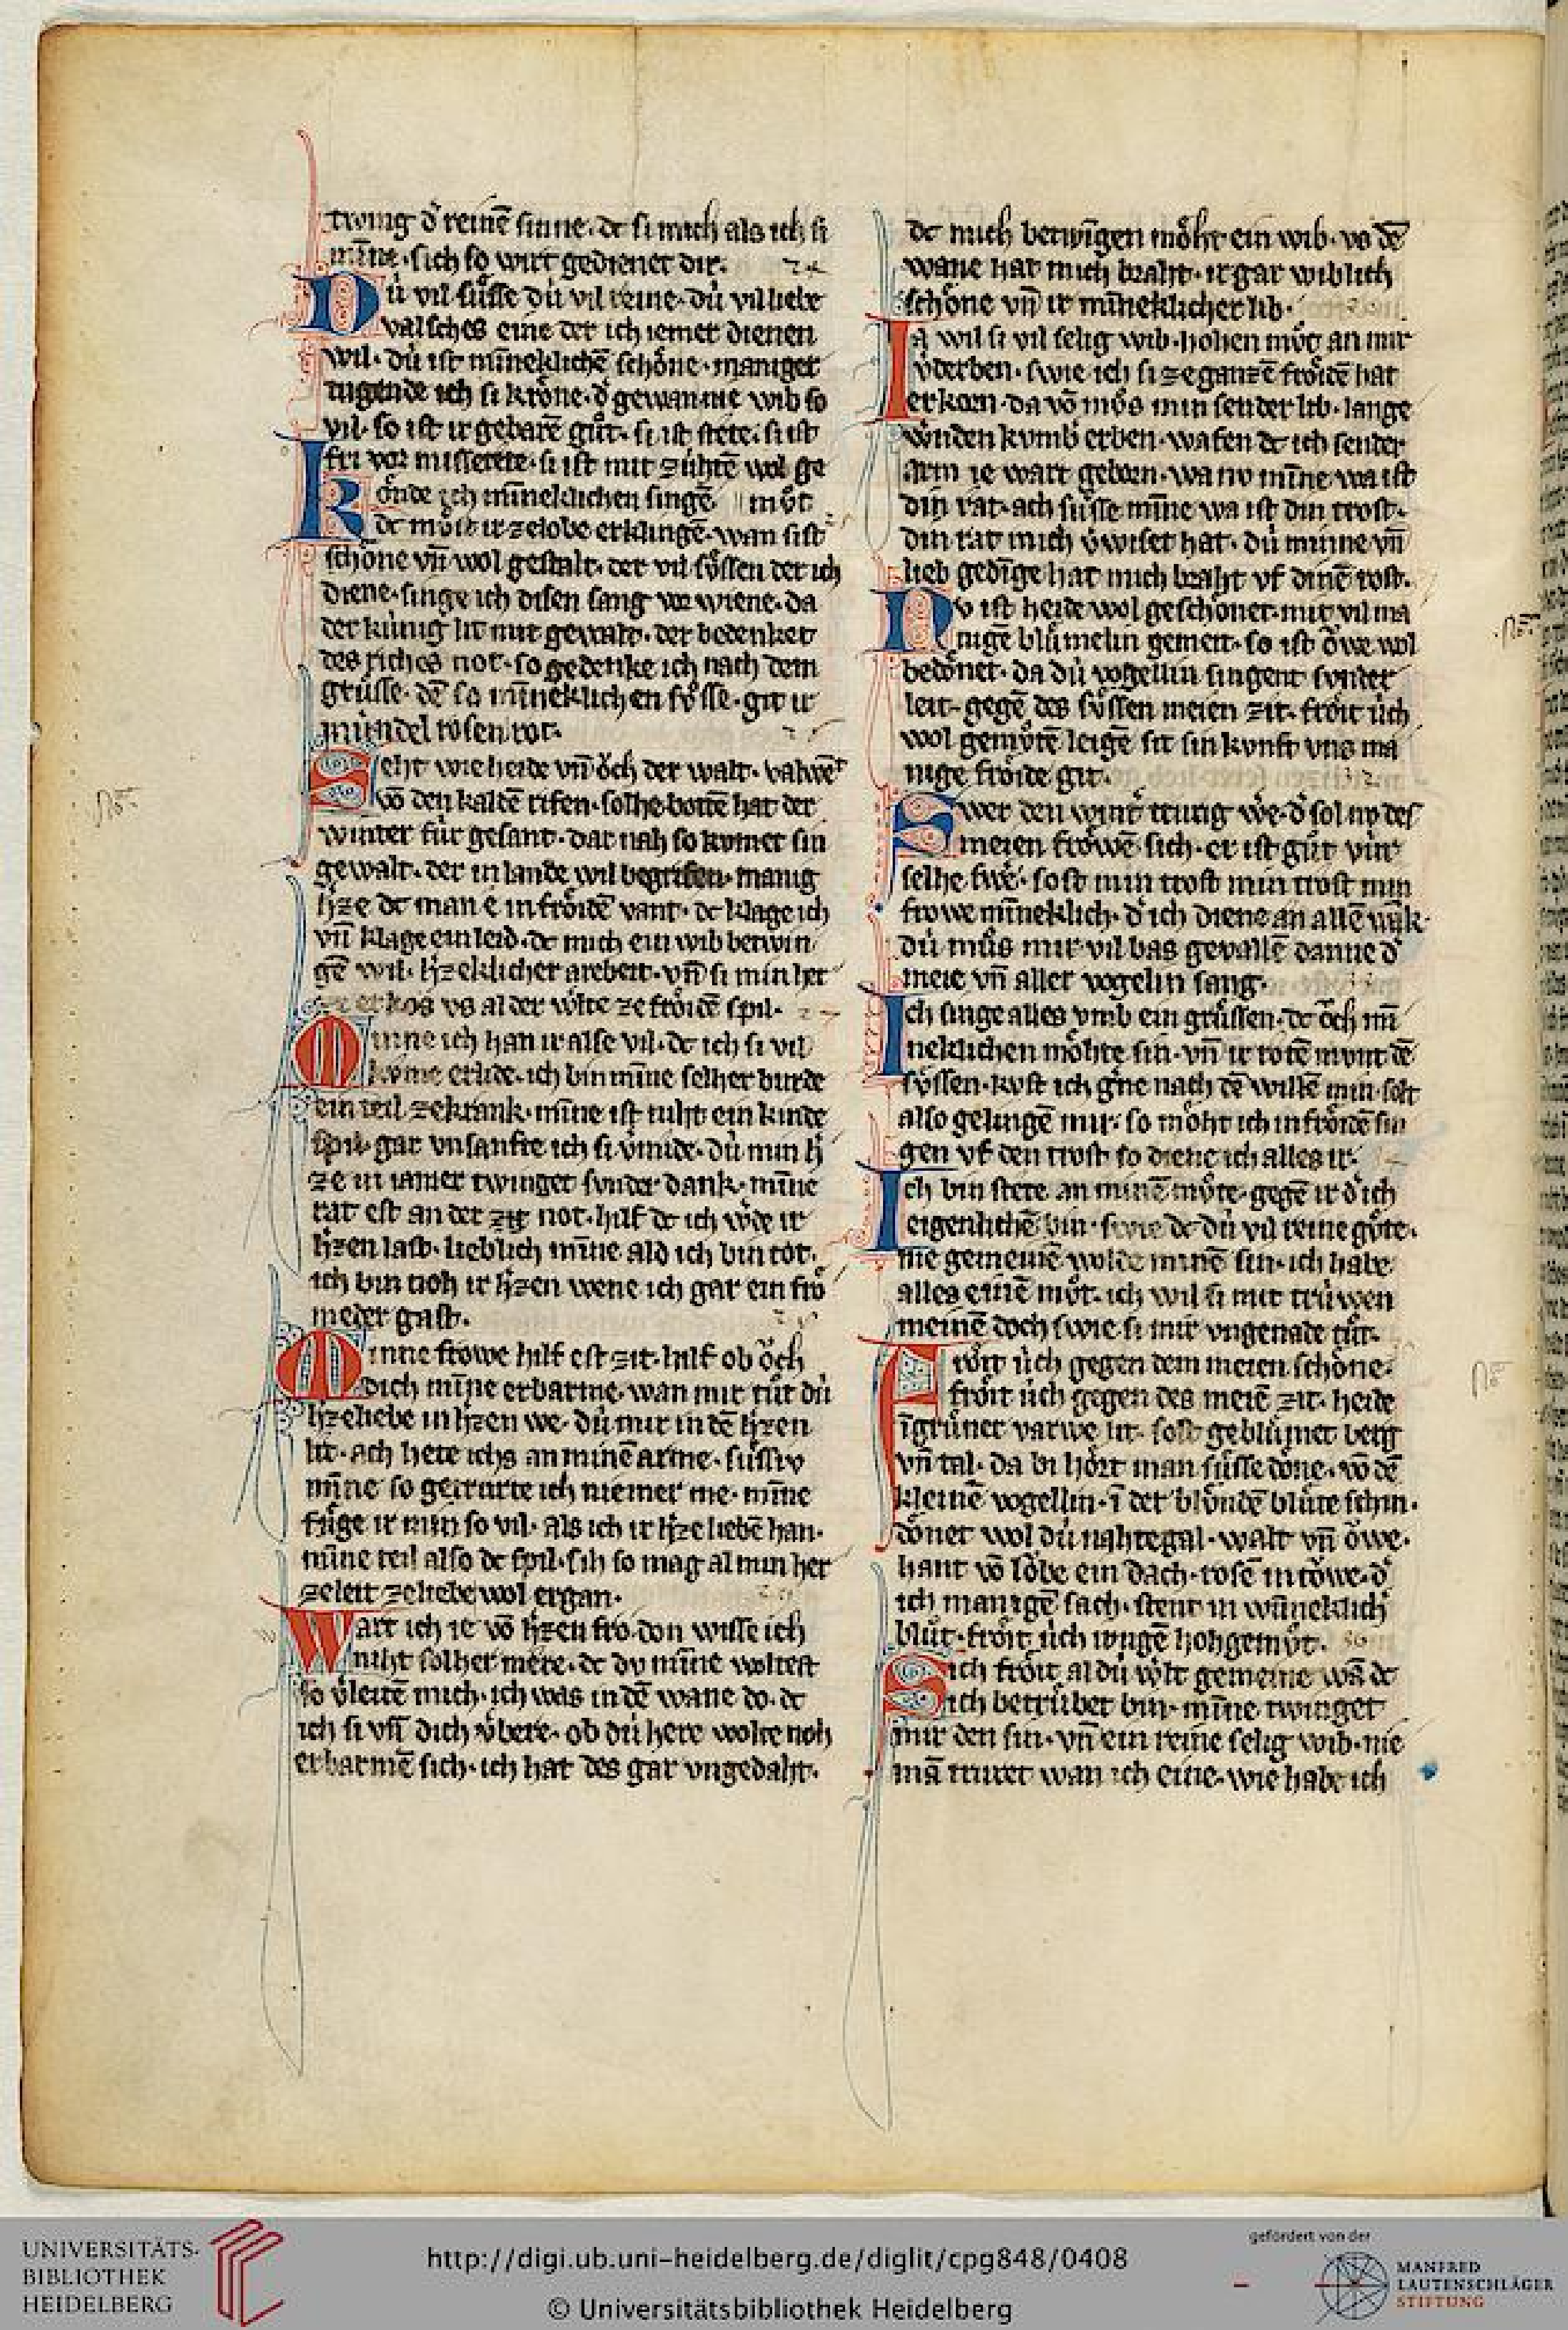 twing d͛ reinē sinne. dc si mich als ich si
miñe. sich so wirt gedienet dir.
Dú vil sůsse dú vil reine. dú vil liebe
valsches eine der ich iemer dienen
wil. dú ist miñeklichē schône. maniger
tugende ich si krône. d͛ gewan nie wib so
vil. so ist ir gebarē gůt. si ist stete. si ist
fri vor missetete. si ist mit zúhtē wol ge
Kônde ich miñeklichen singē. mv̊t
dc mv̊is ir ze lobe erklingē. wan sist
schône vñ wol gestalt. der vil sv̊ssen der ich
diene. singe ich disen sang vor wiene. da
der kúnig lit mit gewalt. der bedenket
des riches not. so gedenke ich nach dem
grůsse. dē so miñeklichen sv̊sse. git ir
múndel rosen rot.
Seht wie heide vñ ǒch der walt. valwēt
vō den kaldē rifen. solhe bottē hat der
winter fúr gesant. dar nah so kvmet sin
gewalt. der in lande wil begrifen. manig
h͛ze dc man e in frôidē vant. dc klage ich
vñ klage ein leid. dc mich ein wib betwin
gē wil. h͛zeklicher arebeit. vñ si min her
ze erkos vs al der w͛lte ze frôidē spil.
Minne ich han ir alse vil. dc ich si vil
kvme erlide. ich bin miñe selher burde
ein teil ze krank. miñe ist niht ein kinde
spil. gar vnsanfte ich si v͛mide. dú min h͛
ze in iamer twinget svnder dank. miñe
rat est an der zit not. hilf dc ich w͛de ir
h͛zen last. lieblich miñe ald ich bin tot.
ich bin noh ir h͛zen wene ich gar ein frô
meder gast.
Minne frowe hilf est zit. hilf ob ǒch
dich miñe erbarme. wan mir tůt dú
h͛zeliebe in h͛zen we. dú mir in dē h͛zen
lit. ach hete ichs an minē arme. sůssv
miñe so getrurte ich niemer me. miñe
fůge ir min so vil. als ich ir h͛ze liebē han.
miñe teil also dc spil. sih so mag al min her
zeleit ze liebe wol ergan.
Wart ich ie vō h͛zen fro. don wisse ich
niht solher mere. dc dv miñe woltest
so v͛leitē mich. ich was in dē wane do. dc
ich si vñ dich v͛bere. ob dú here wolte noh
erbarmē sich. ich hat des gar vngedaht.
dc mich betwīgen môht ein wib. vs dē
wane hat mich braht. ir gar wiblich
schône vñ ir miñeklicher lib.
Ia wil si vil selig wib. hohen mv̊t an mir
v͛derben. swie ich si ze ganzē frôidē hat
erkorn. da vō mv̊s min sender lib. lange
w͛nden kvmb͛ erben. wafen dc ich sender
arm ie wart geborn. wa nv miñe wa ist
din rat. ach sůsse miñe wa ist din trost.
din rat mich v͛wiset hat. dú minne vñ
lieb gedīge hat mich braht vf dinē rost.
Nv ist heide wol geschônet. mit vil ma
nigē blůmelin gemeit. so ist ǒwe wol
bedônet. da dú vogellin singent svnder
leit. gegē des sv̊ssen meien zit. frôit úch
wol gemv̊tē leigē sit sin kvnft vns ma
nige frôide git.
Swer den wint͛ trurig we. d͛ sol nv des
meien frôwē sich. er ist gůt vúr
selhe swe͛. so st min trost min trost min
frowe miñeklich. d͛ ich diene an allē wāk.
dú můs mir vil bas gevallē danne d͛
meie vñ aller vogelin sang.
Ich singe alles vmb ein grůssen. dc ǒch miñ
neklichen môhte sin. vñ ir rotē mvnt dē
sv̊ssen. kvst ich g͛ne nach dē willē min. solt
also gelingē mir. so môht ich in frôidē sin
gen vf den trost so diene ich alles ir.
Ich bin stete an minē mv̊te. gegē ir d͛ ich
eigenlichē bin. swie dc dú vil reine gv̊te.
nie gemeinē wolde minē sin. ich habe
alles einē mv̊t. ich wil si mit trúwen
meinē doch swie si mir vngenade tůt.
Frôit úch gegen dem meien schône.
frôit úch gegen des meiē zit. heide
ī grůner varwe lit. sost geblůmet berg
vñ tal. da bi hôrt man sůsse dône. vō dē
kleinē vogellin. ī der blůndē blůte schin.
dônet wol dú nahtegal. walt vñ ǒwe.
hant vō lǒbe ein dach. rosē in tǒwe. d͛
ich manigē sach. stent in wñneklich͛
blůt. frôit úch ivngē hohgemv̊t.
Sich frôit al dú w͛lt gemeine wā dc
ich betrůbet bin. miñe twinget
mir den sin. vñ ein reine selig wib. nie
mā truret wan ich eine. wie habe ich
UNIVERSITÄTS-
BIBLIOTHEK
HEIDELBERG
http://digi.ub.uni-heidelberg.de/diglit/cpg848/0408
© Universitätsbibliothek Heidelberg
gefördert von der
MANFRED
LAUTENSCHLÄGER
STIFTUNG